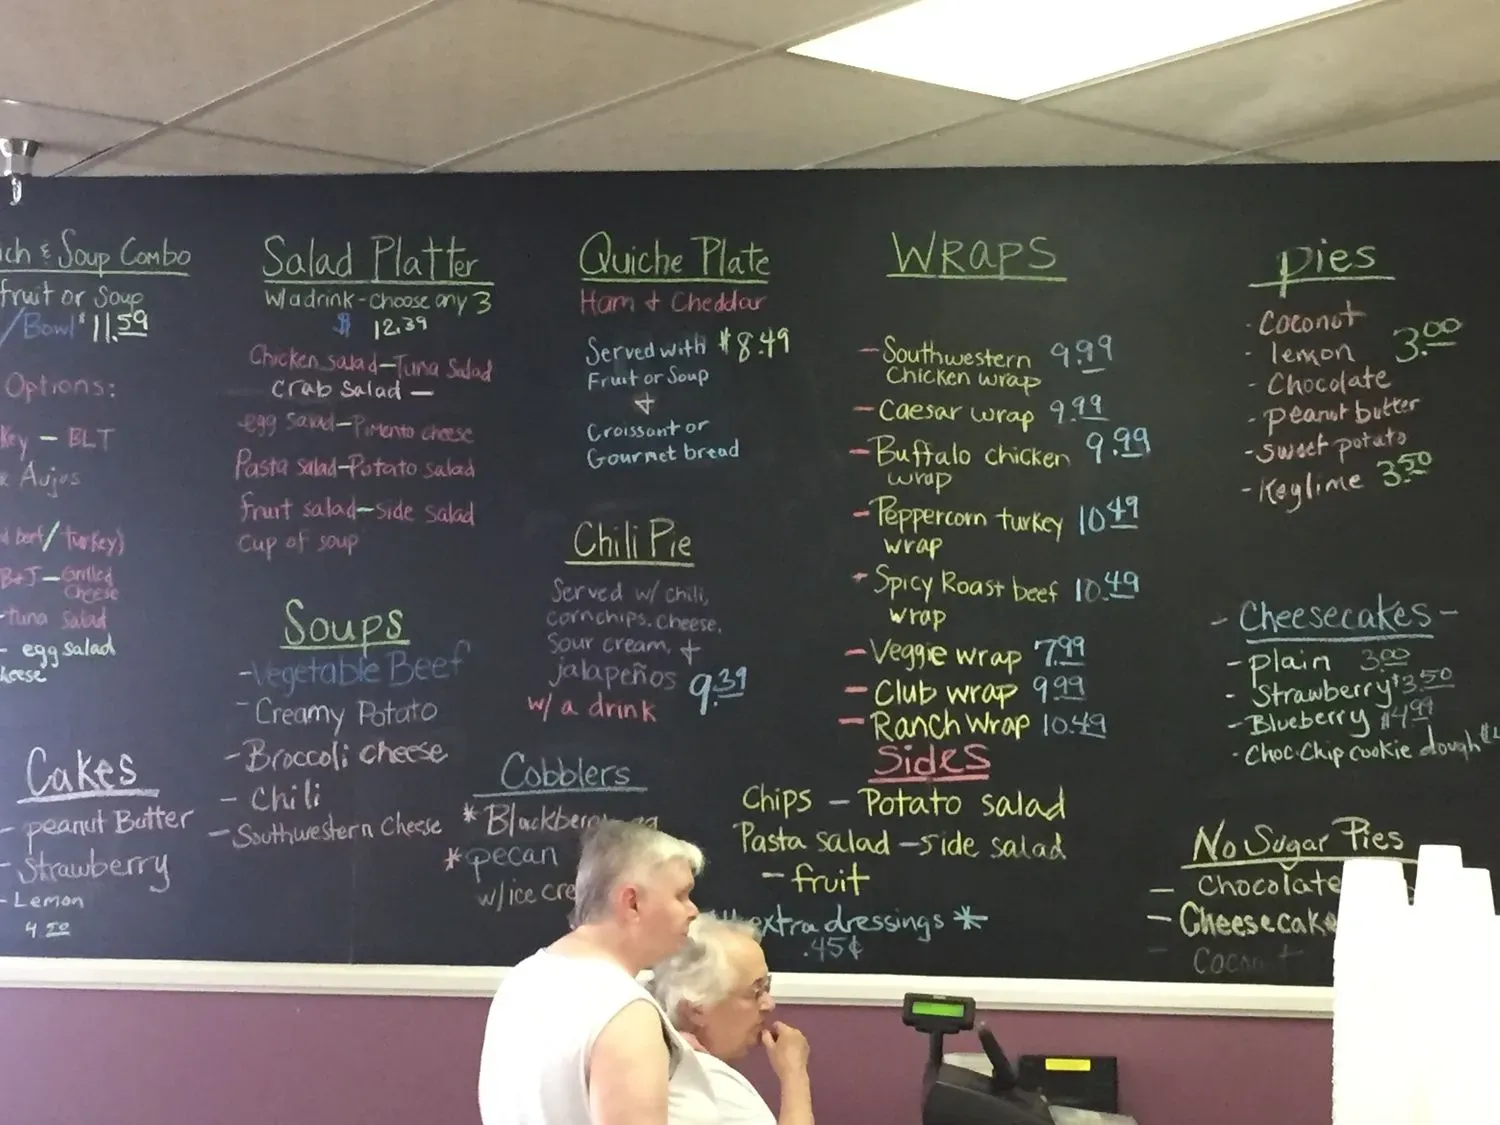 & Soup Combo
fruit or Soup
/Bowl $11.59
Options:
- BLT
Aujus
/turkey)
B+J - Grilled
Cheese
- tuna salad
- egg salad
Cakes
- peanut Butter
- Strawberry
- Lemon
4.50
Salad Platter
w/a drink - choose any 3
$ 12.39
Chicken salad - Tuna Salad
Crab Salad -
egg salad - Pimento cheese
Pasta salad - Potato salad
fruit salad - side salad
cup of soup
Soups
- Vegetable Beef
- Creamy Potato
- Broccoli cheese
- Chili
- Southwestern Cheese
Quiche Plate
Ham + Cheddar
Served with $8.49
Fruit or Soup
+
Croissant or
Gourmet bread
Chili Pie
Served w/ chili,
corn chips, cheese,
Sour cream, +
jalapeños 9.39
w/ a drink
Cobblers
* Blackberry
* pecan
w/ice
WRAPS
- Southwestern 9.99
Chicken wrap
- Caesar wrap 9.99
- Buffalo chicken 9.99
wrap
- Peppercorn turkey 10.49
wrap
- Spicy Roast beef 10.49
wrap
- Veggie wrap 7.99
- Club wrap 9.99
- Ranch wrap 10.49
Sides
Chips - Potato salad
Pasta salad - side salad
- fruit
extra dressings *
.45¢
Pies
- Coconut
- lemon 3.00
- Chocolate
- peanut butter
- sweet potato
- Keylime 3.50
- Cheesecakes -
- plain 3.00
- Strawberry $3.50
- Blueberry $4.99
- Choc. Chip cookie dough
No Sugar Pies
- Chocolate
- Cheesecake
Coconut